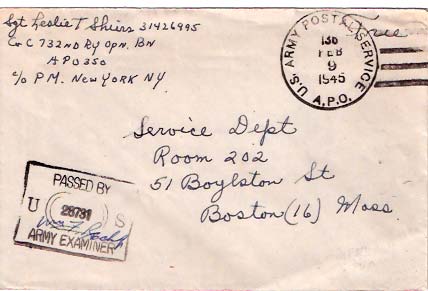 Sgt Leslie T Shirs 31426995
Co C 732ND Ry Opn. BN
APO 350
c/o P.M. New York NY
Free
U.S. ARMY POSTAL SERVICE
136
FEB
9
1945
A.P.O.
Service Dept
Room 202
51 Boylston St
Boston (16) Mass.
PASSED BY
U 28731 S
ARMY EXAMINER